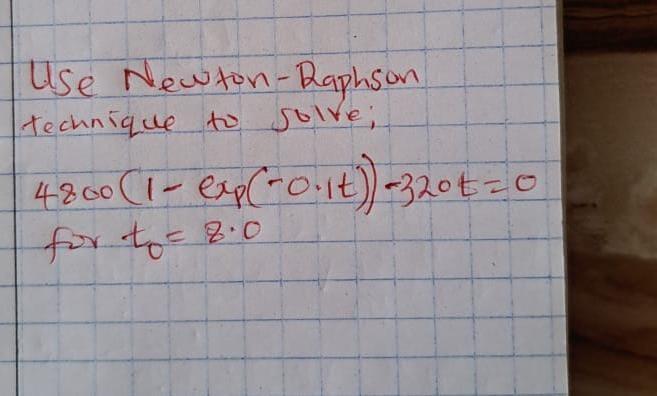 Use Newton-Raphson
technique to solve;
4800(1- exp(-0.1t))-320t=0
for t₀= 8.0